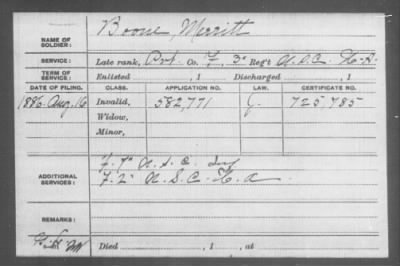 NAME OF SOLDIER: Boone Merritt
SERVICE: Late rank, Pvt Co. F, 3" Reg't U.S.C. H.A.
TERM OF SERVICE: Enlisted , 1 Discharged , 1
DATE OF FILING. CLASS. APPLICATION NO. LAW. CERTIFICATE NO.
1886 Aug. 16 Invalid, 582,771 J. 725,785
Widow,
Minor,
F. 7" U.S.C. Inf
ADDITIONAL SERVICES: F. 2" U.S.C. H.A.
REMARKS:
Died , 1 , at